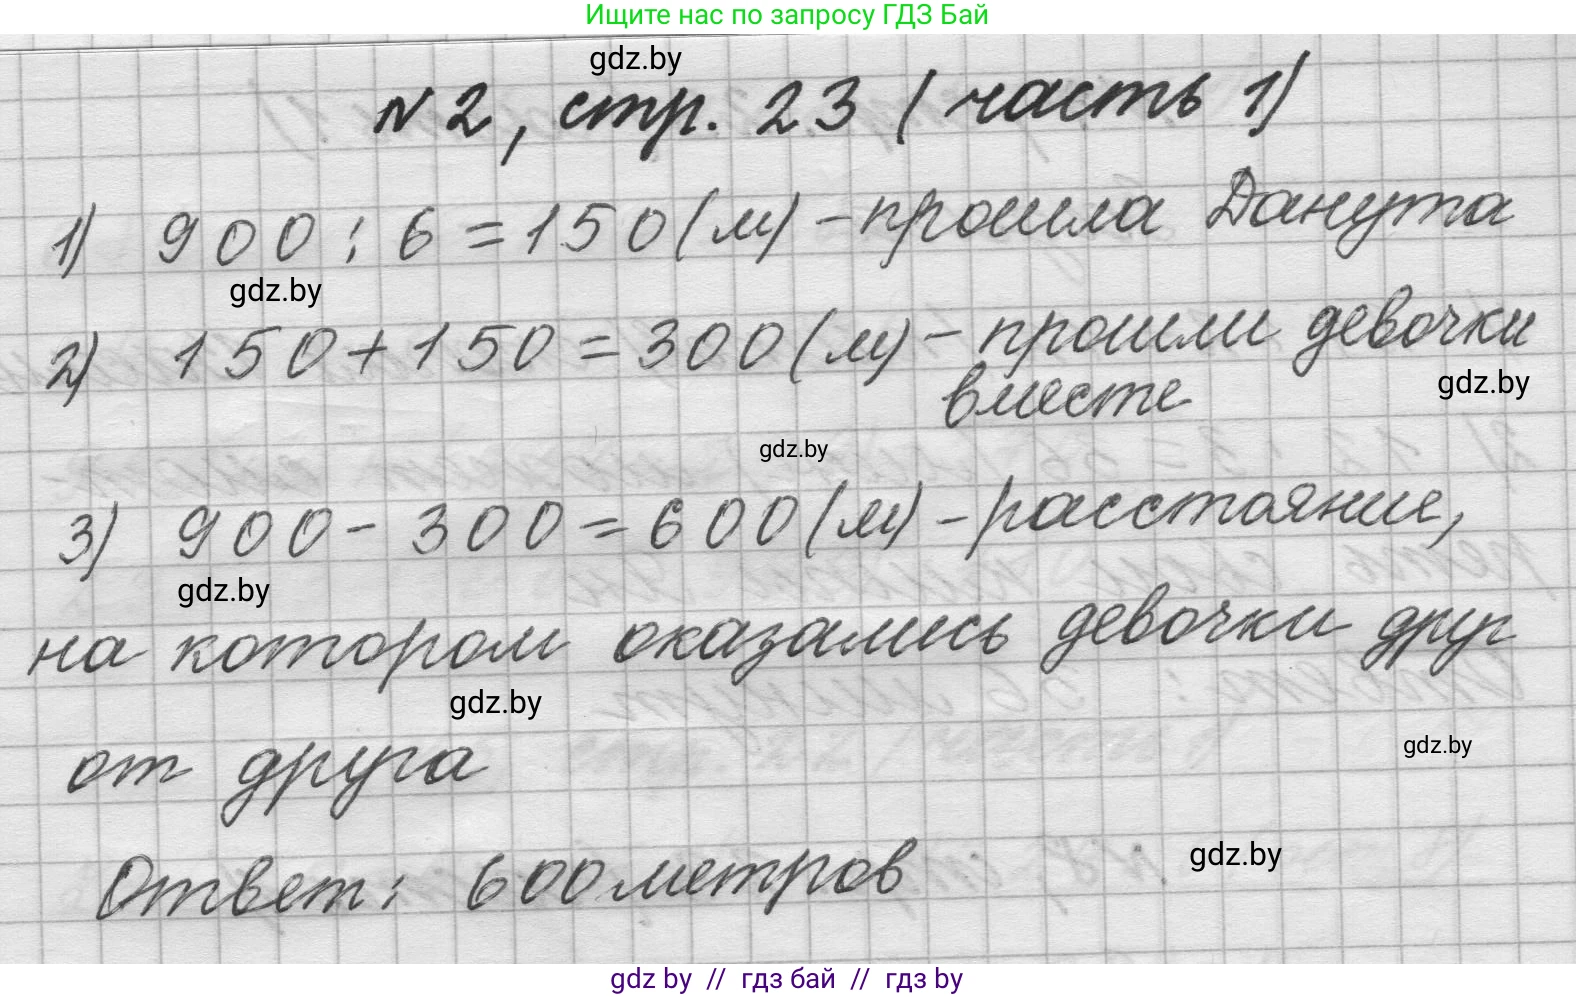 Ищите нас по запросу ГДЗ Бай
gdz.by
№2, стр. 23 (часть 1)
1) 900 : 6 = 150 (м) - прошла Данута
gdz.by
2) 150 + 150 = 300 (м) - прошли девочки
вместе
gdz.by
gdz.by
3) 900 - 300 = 600 (м) - расстояние,
gdz.by
на котором оказались девочки друг
gdz.by
от друга
gdz.by
gdz.by
Ответ: 600 метров
gdz.by // гдз бай // гдз by